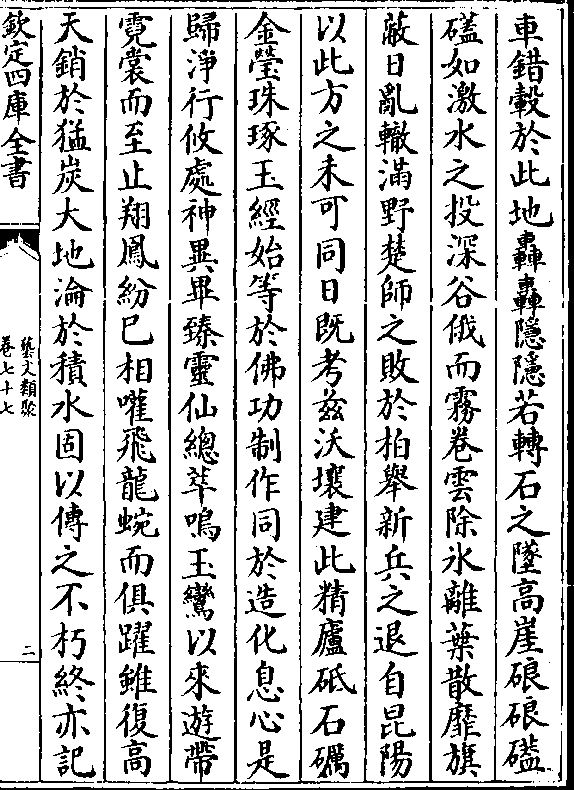 車錯轂於此地轟轟隱隱若轉石之墜高崖硠硠礚
礚如激水之投深谷俄而霧卷雲除氷離葉散靡旗
蔽日亂轍滿野楚師之敗於柏舉新兵之退自昆陽
以此方之未可同日既考兹沃壤建此精廬砥石礪
金瑩珠琢玉經始等於佛功制作同於造化息心是
歸淨行攸處神異畢臻靈仙總萃鳴玉鸞以來遊帶
霓裳而至止翔鳳紛已相嚾飛龍蜿而俱躍雖復高
天銷於猛炭大地淪於積水固以傳之不朽終亦記
欽定四庫全書
藝文類聚
卷七十七
二